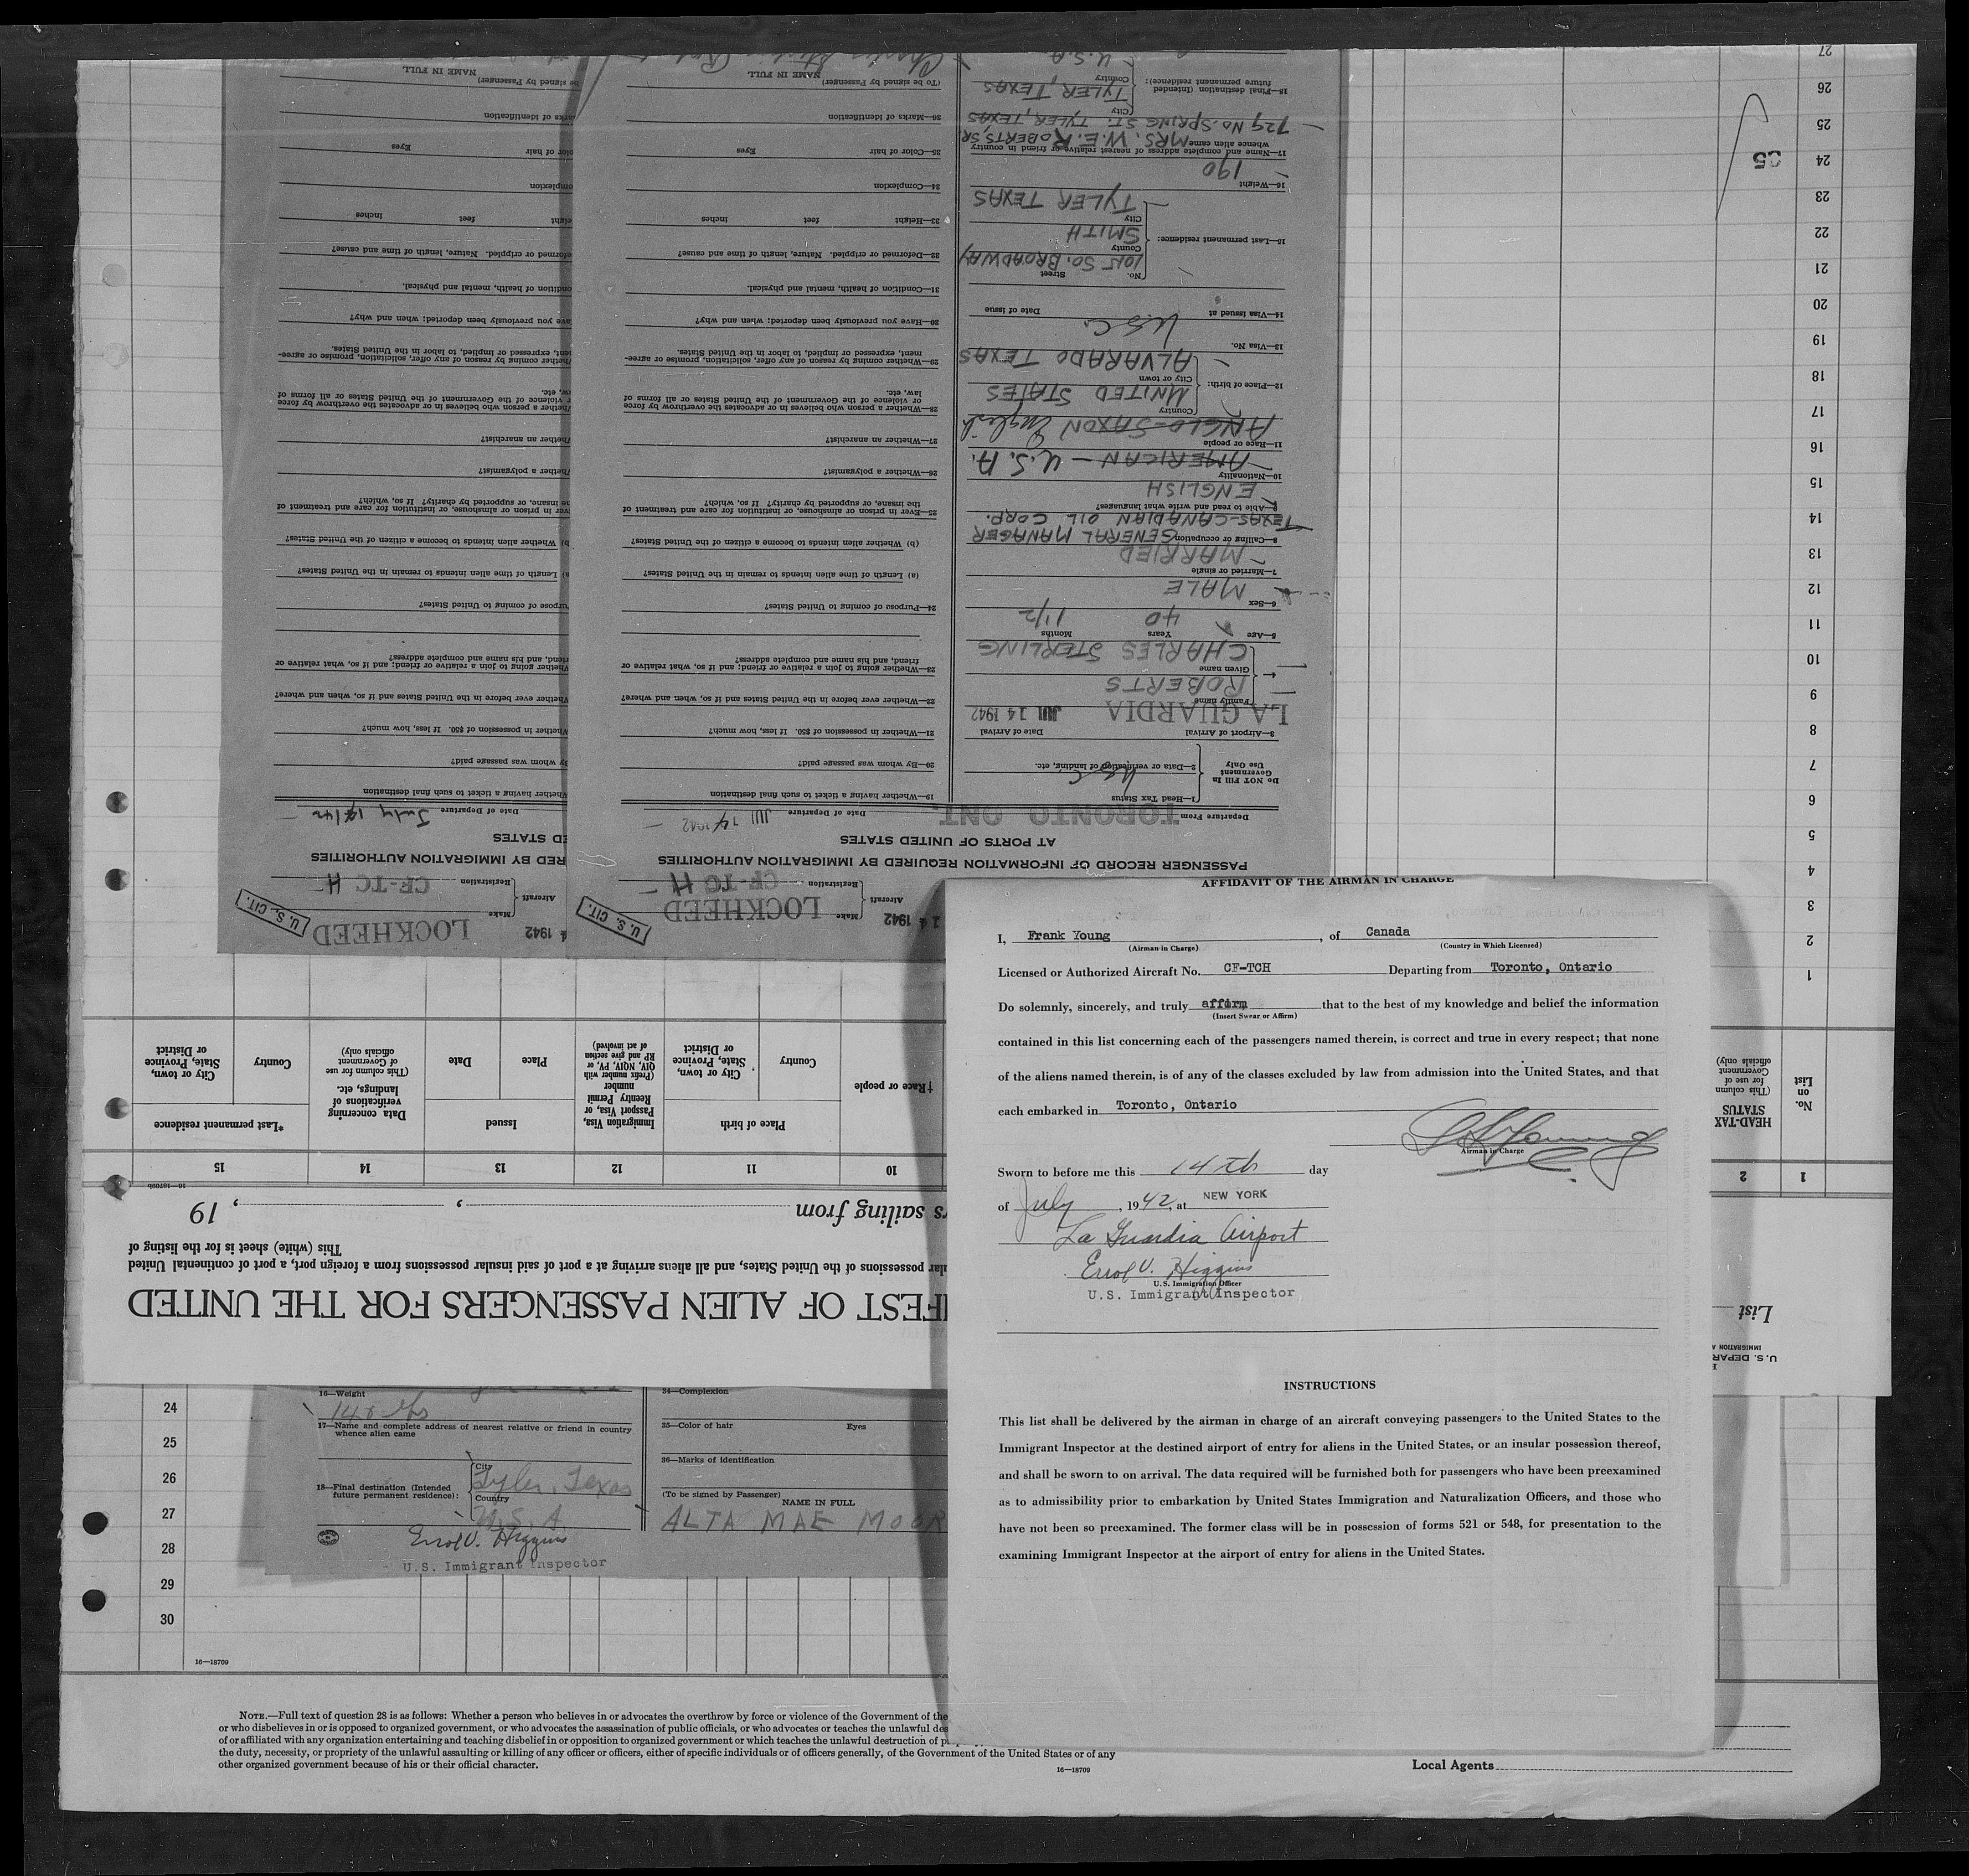 AFFIDAVIT OF THE AIRMAN IN CHARGE
I, Frank Young, of Canada
(Airman in Charge) (Country in Which Licensed)
Licensed or Authorized Aircraft No. CF-TCH Departing from Toronto, Ontario
Do solemnly, sincerely, and truly affirm that to the best of my knowledge and belief the information
(Insert Swear or Affirm)
contained in this list concerning each of the passengers named therein, is correct and true in every respect; that none
of the aliens named therein, is of any of the classes excluded by law from admission into the United States, and that
each embarked in Toronto, Ontario
Airman in Charge
Sworn to before me this 14th day
of July, 1942, at NEW YORK
La Guardia Airport
Errol V. Higgins
U. S. Immigration Officer
U.S. Immigrant Inspector
INSTRUCTIONS
This list shall be delivered by the airman in charge of an aircraft conveying passengers to the United States to the
Immigrant Inspector at the destined airport of entry for aliens in the United States, or an insular possession thereof,
and shall be sworn to on arrival. The data required will be furnished both for passengers who have been preexamined
as to admissibility prior to embarkation by United States Immigration and Naturalization Officers, and those who
have not been so preexamined. The former class will be in possession of forms 521 or 548, for presentation to the
examining Immigrant Inspector at the airport of entry for aliens in the United States.
LOCKHEED
Make
Aircraft
Registration CF-TCH
U. S. CIT.
14 1942
PASSENGER RECORD OF INFORMATION REQUIRED BY IMMIGRATION AUTHORITIES
AT PORTS OF UNITED STATES
Departure From TORONTO ONT. Date of Departure JUL 14 1942
Do NOT Fill In
Government
Use Only
1—Head Tax Status
2—Data or verification of landing, etc.
3—Airport of Arrival Date of Arrival
LA GUARDIA JUL 14 1942
4
Family name
ROBERTS
Given name
CHARLES STERLING
5—Age Years 40 Months 1 1/2
6—Sex MALE
7—Married or single
MARRIED
8—Calling or occupation GENERAL MANAGER
TEXAS-CANADIAN OIL CORP.
9—Able to read and write what languages?
ENGLISH
10—Nationality
AMERICAN — U.S.A.
11—Race or people
ANGLO-SAXON English
12—Place of birth:
Country
UNITED STATES
City or town
ALVARADO TEXAS
13—Visa No.
U.S.C.
14—Visa issued at Date of issue
15—Last permanent residence:
No. Street
1015 SO. BROADWAY
County
SMITH
City
TYLER TEXAS
16—Weight
190
17—Name and complete address of nearest relative or friend in country
whence alien came MRS. W.E. ROBERTS, SR.
729 NO. SPRING ST. TYLER, TEXAS
18—Final destination (Intended
future permanent residence):
City
TYLER, TEXAS
Country
U.S.A.
19—Whether having a ticket to such final destination
20—By whom was passage paid?
21—Whether in possession of $50. If less, how much?
22—Whether ever before in the United States and if so, when and where?
23—Whether going to join a relative or friend; and if so, what relative or
friend, and his name and complete address?
24—Purpose of coming to United States?
(a) Length of time alien intends to remain in the United States?
(b) Whether alien intends to become a citizen of the United States?
25—Ever in prison or almshouse, or institution for care and treatment of
the insane, or supported by charity? If so, which?
26—Whether a polygamist?
27—Whether an anarchist?
28—Whether a person who believes in or advocates the overthrow by force
or violence of the Government of the United States or all forms of
law, etc.
29—Whether coming by reason of any offer, solicitation, promise or agree-
ment, expressed or implied, to labor in the United States.
30—Have you previously been deported; when and why?
31—Condition of health, mental and physical.
32—Deformed or crippled. Nature, length of time and cause?
33—Height feet inches
34—Complexion
35—Color of hair Eyes
36—Marks of identification
(To be signed by Passenger) NAME IN FULL
LOCKHEED
Make
Aircraft
Registration CF-TCH
U. S. CIT.
1942
RED BY IMMIGRATION AUTHORITIES
ED STATES
Date of Departure July 14/42
MANIFEST OF ALIEN PASSENGERS FOR THE UNITED
possessions of the United States, and all aliens arriving at a port of said insular possessions from a foreign port, a port of continental United
This (white) sheet is for the listing of
sailing from , , 19
List
1 2 10 11 12 13 14 15
No. on List
HEAD-TAX STATUS
(This column for use of Government officials only)
†Race or people
Place of birth
Country
City or town, State, Province or District
Immigration Visa, Passport Visa, or Reentry Permit number
(Prefix number with QIV, NQIV, PV, or RP and give section of act involved)
Issued
Place
Date
Data concerning verifications of landings, etc.
(This column for use of Government officials only)
*Last permanent residence
Country
City or town, State, Province or District
1
2
3
4
5
6
7
8
9
10
11
12
13
14
15
16
17
18
19
20
21
22
23
24
25
26
27
16—Weight
17—Name and complete address of nearest relative or friend in country
whence alien came
18—Final destination (Intended
future permanent residence):
City
Tyler, Texas
Country
U.S.A
Errol V. Higgins
U.S. Immigrant Inspector
34—Complexion
35—Color of hair Eyes
36—Marks of identification
(To be signed by Passenger) NAME IN FULL
ALTA MAE MOOR
24
25
26
27
28
29
30
16—18709
NOTE.—Full text of question 28 is as follows: Whether a person who believes in or advocates the overthrow by force or violence of the Government of the
or who disbelieves in or is opposed to organized government, or who advocates the assassination of public officials, or who advocates or teaches the unlawful
of or affiliated with any organization entertaining and teaching disbelief in or opposition to organized government or which teaches the unlawful destruction of
the duty, necessity, or propriety of the unlawful assaulting or killing of any officer or officers, either of specific individuals or of officers generally, of the Government of the United States or of any
other organized government because of his or their official character.
16—18709
Local Agents